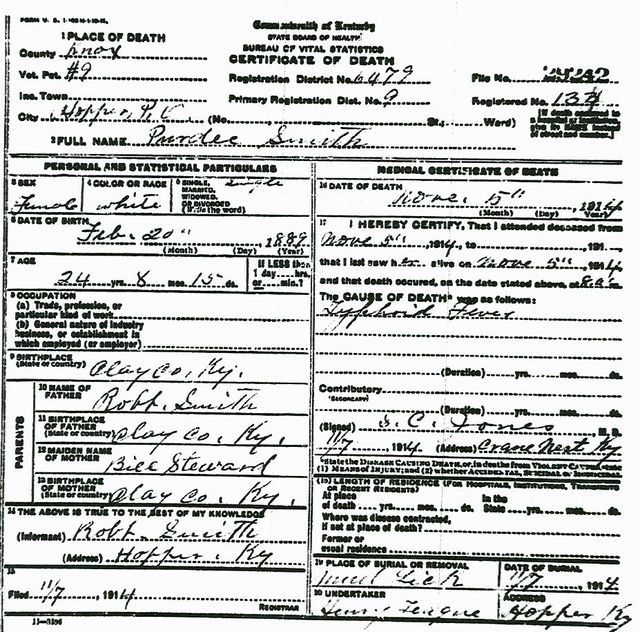 Commonwealth of Kentucky
STATE BOARD OF HEALTH
BUREAU OF VITAL STATISTICS
CERTIFICATE OF DEATH
1 PLACE OF DEATH
County Knox
Vot. Pct. #9
Inc. Town
City Hopper, Ky (No. St., Ward)
Registration District No. 6479
Primary Registration Dist. No. 9
File No.
Registered No.
[If death occurred in a hospital or institution, give its NAME instead of street and number.]
2 FULL NAME Purdee Smith
PERSONAL AND STATISTICAL PARTICULARS
3 SEX Female
4 COLOR OR RACE white
5 SINGLE, MARRIED, WIDOWED, OR DIVORCED (Write the word) single
6 DATE OF BIRTH Feb. 20" 1889
(Month) (Day) (Year)
7 AGE 24 yrs. 8 mos. 15 ds.
If LESS than 1 day....hrs. or....min.?
8 OCCUPATION
(a) Trade, profession, or particular kind of work
(b) General nature of industry business, or establishment in which employed (or employer)
9 BIRTHPLACE (State or country) Clay Co. Ky.
PARENTS
10 NAME OF FATHER Robt. Smith
11 BIRTHPLACE OF FATHER (State or country) Clay Co. Ky.
12 MAIDEN NAME OF MOTHER Bice Steward
13 BIRTHPLACE OF MOTHER (State or country) Clay Co. Ky.
14 THE ABOVE IS TRUE TO THE BEST OF MY KNOWLEDGE
(Informant) Robt. Smith
(Address) Hopper, Ky
15
Filed 11/7, 1914
REGISTRAR
11-3184
MEDICAL CERTIFICATE OF DEATH
16 DATE OF DEATH Nove. 5" 1914
(Month) (Day) (Year)
17 I HEREBY CERTIFY, That I attended deceased from
Nove 5", 1914, to , 191
that I last saw her alive on Nove 5", 1914,
and that death occured, on the date stated above, at m.
The CAUSE OF DEATH* was as follows:
Typhoid Fever
(Duration) yrs. mos. ds.
Contributory (SECONDARY)
(Duration) yrs. mos. ds.
(Signed) S. C. Jones M. D.
11/7, 1914 (Address) Crane Nest Ky
*State the DISEASE CAUSING DEATH, or, in deaths from VIOLENT CAUSES, state (1) MEANS OF INJURY; and (2) whether ACCIDENTAL, SUICIDAL or HOMICIDAL.
(18) LENGTH OF RESIDENCE (FOR HOSPITALS, INSTITUTIONS, TRANSIENTS OR RECENT RESIDENTS)
At place of death yrs. mos. ds. In the State yrs. mos. ds.
Where was disease contracted, if not at place of death?
Former or usual residence
19 PLACE OF BURIAL OR REMOVAL Lick
DATE OF BURIAL 11/7, 1914
20 UNDERTAKER Henry Teague
ADDRESS Hopper Ky